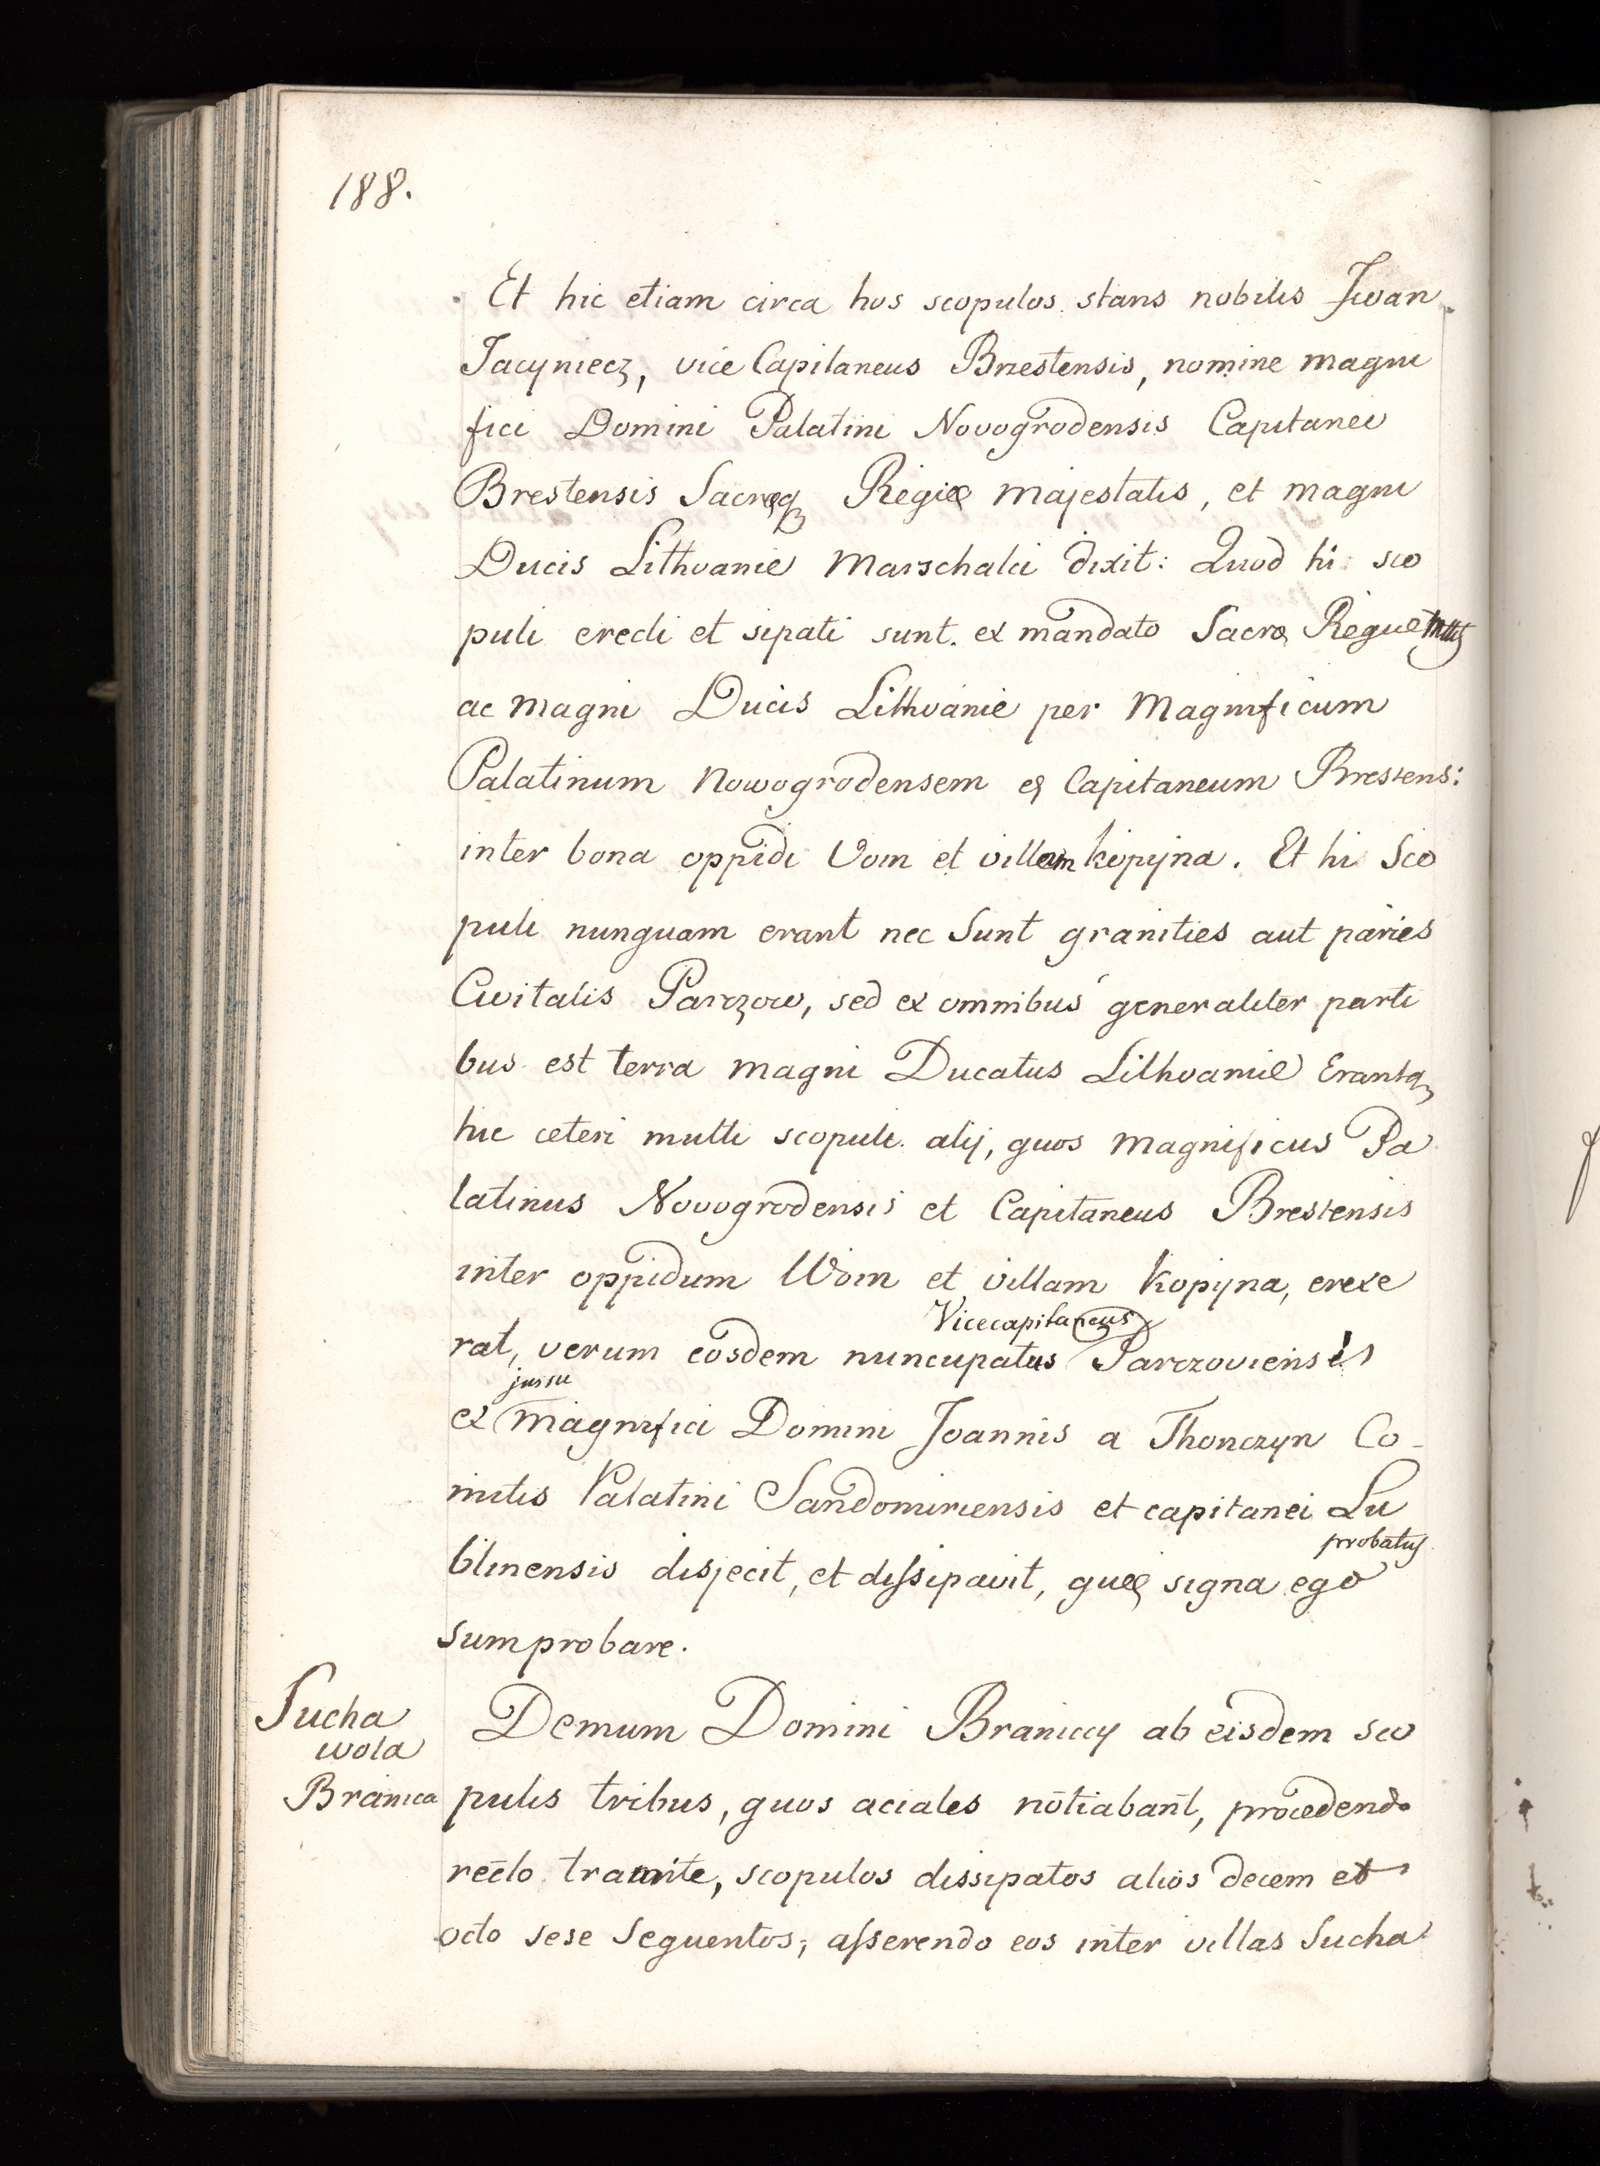 188.
Et hic etiam circa hos scopulos stans nobilis Iwan
Jacyniecz, vice Capitaneus Brzestensis, nomine magni
fici Domini Palatini Novogrodensis Capitanei
Brestensis Sacręq Regię majestatis, et magni
Ducis Lithvanie Marschalci dixit: Quod hi sco
puli erecti et sipati sunt. ex mandato Sacrę Regie mttis
ac magni Ducis Lithvanie per Magnificum
Palatinum Nowogrodensem et Capitaneum Brestens:
inter bona oppidi Voin et villam Kopijna. Et hi Sco
puli nunquam erant nec sunt granities aut paries
Civitatis Parczow, sed ex omnibus generaliter parti
bus est terra magni Ducatus Lithvanie Erantq
hic ceteri multi scopuli alij, quos magnificus Pa
latinus Novogrodensis et Capitaneus Brestensis
inter oppidum Woin et villam Kopijna, erexe
Vicecapitaneus
rat, verum eosdem nuncupatus Parczoviensis
jussu
ex magnifici Domini Joannis a Thonczyn Co-
mitis Palatini Sandomiriensis et capitanei Lu
probatus
blinensis disjecit, et dissipavit, quę signa ego
sum probare.
Sucha
wola
Branica
Demum Domini Braniccy ab eisdem sco
pulis tribus, quos aciales nōtiabant, procedendo
recto tramite, scopulos dissipatos alios decem et
octo sese sequentos, asserendo eos inter villas Sucha